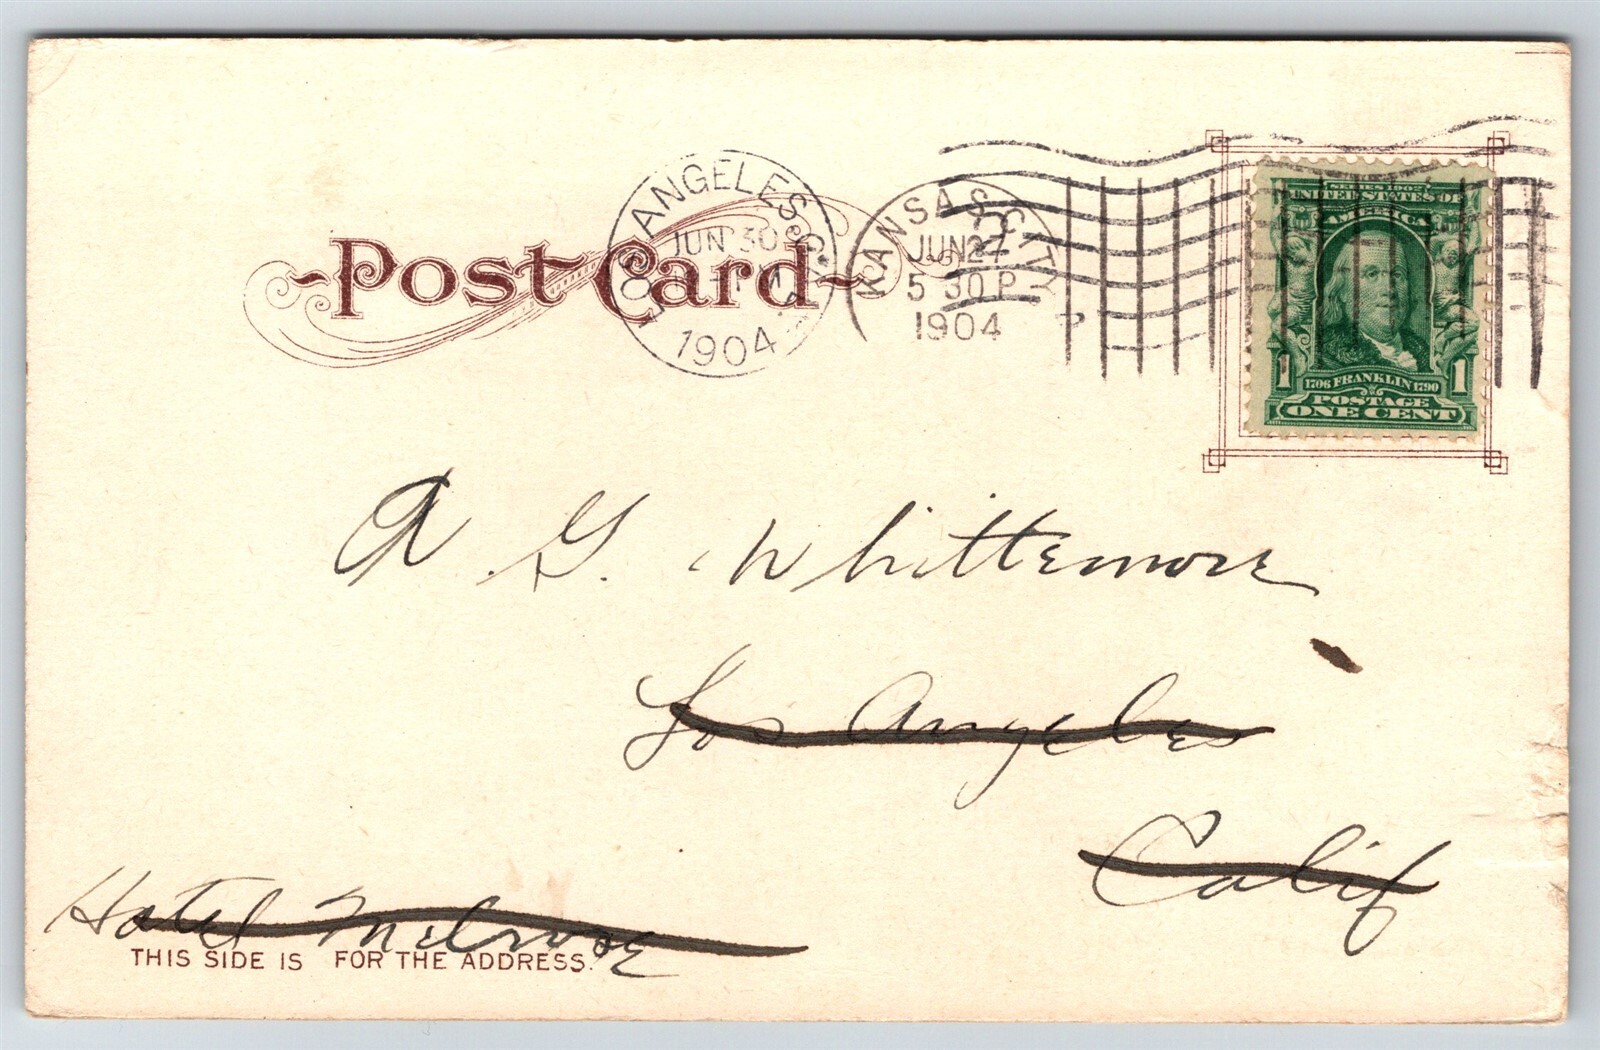 Post Card
LOS ANGELES, CAL.
JUN 30
1904
KANSAS CITY
JUN 27
5 30 P
1904
SERIES 1902
UNITED STATES OF
AMERICA
1 1
1706 FRANKLIN 1790
POSTAGE
ONE CENT
A. G. Whittemore
Los Angeles
Calif
Hotel Melrose
THIS SIDE IS FOR THE ADDRESS.